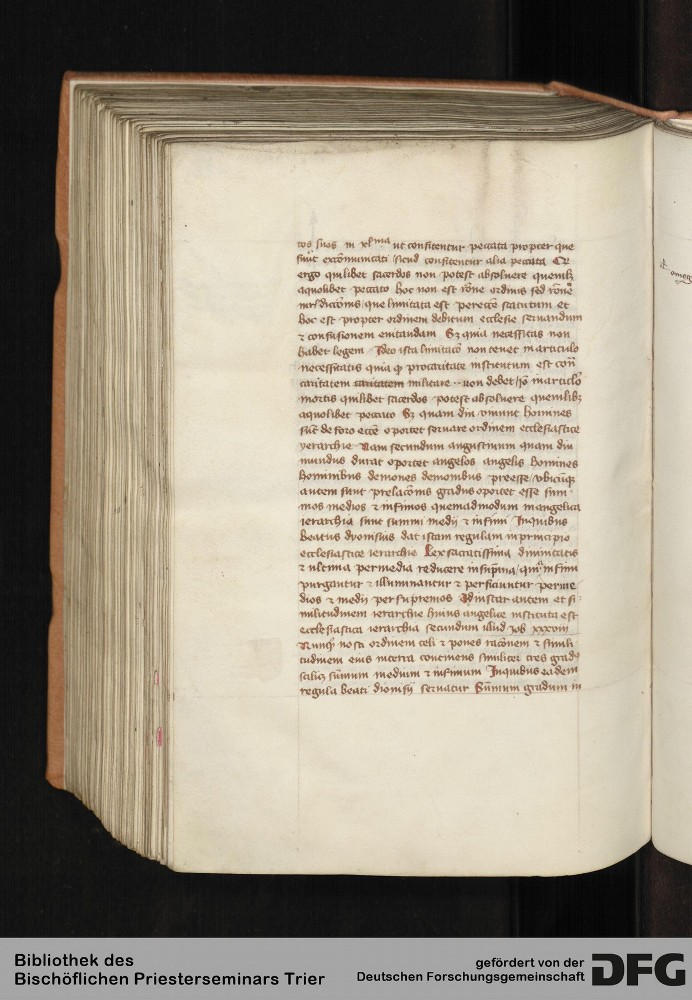 tos suos in xlma ut confitentur peccata propter que
sunt excōmunicati sicud confitentur alia peccata Et
ergo quilibet sacerdos non potest absoluere quemlibꝫ
aquolibet peccato hoc non est rōne ordinis sed rōne
que limitata est statutum et
hoc est propter ordinem debitum ecclesie seruandum
⁊ confusionem euitandam Sꝫ quia necessitas non
habet legem Ideo ista limitacō non tenet in articulo
necessitatis quia institutum est
caritatem caritatem militare non debet Iō in articulo
mortis quilibet sacerdos potest absoluere quemlibꝫ
aquolibet peccato Sꝫ quam diu viuunt homines
sūt de foro eccē oportet seruare ordinem ecclesiastice
yerarchie Nam secundum augustinum quam diu
mundus durat oportet angelos angelis homines
hominibus demones demonibus preesse vbicūqꝫ
autem sunt prelacōnis gradus oportet esse sum
mos medios ⁊ infimos quemadmodum inangelica
ierarchia sunt summi medii ⁊ infimi Inquibus
beatus dyonisius dat istam regulam inprincipio
ecclesiastice ierarchie Lex sacratissima diuinitatis
⁊ ultima permedia reducere insuprema infimi
purgantur ⁊ illuminantur ⁊ perficiuntur perme
dios ⁊ medii per supremos Adinstar autem et si
militudinem ierarchie huius angelice instituta est
ecclesiastica ierarchia secundum illud iob xxxviii
Nunqͥd nosti ordinem celi ⁊ pones racōnem ⁊ simili
tudinem eius interra continens similiter tres gradꝰ
summum medium ⁊ infimum Inquibus eadem
regula beati dionisii seruatur Sūmum gradum in
omeg
Bibliothek des
Bischöflichen Priesterseminars Trier
gefördert von der
Deutschen Forschungsgemeinschaft
DFG